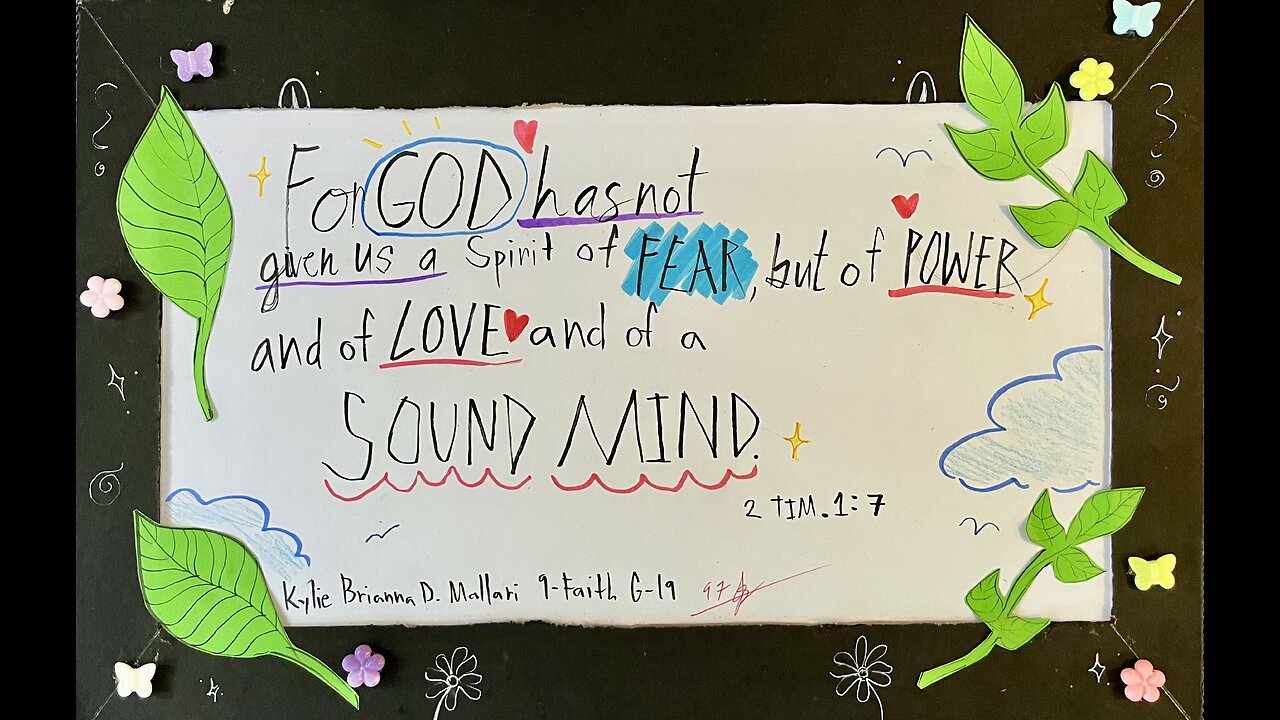 For GOD has not
given us a Spirit of FEAR, but of POWER
and of LOVE and of a
SOUND MIND.
2 TIM. 1:7
Kylie Brianna D. Mallari 9-Faith G-19 97